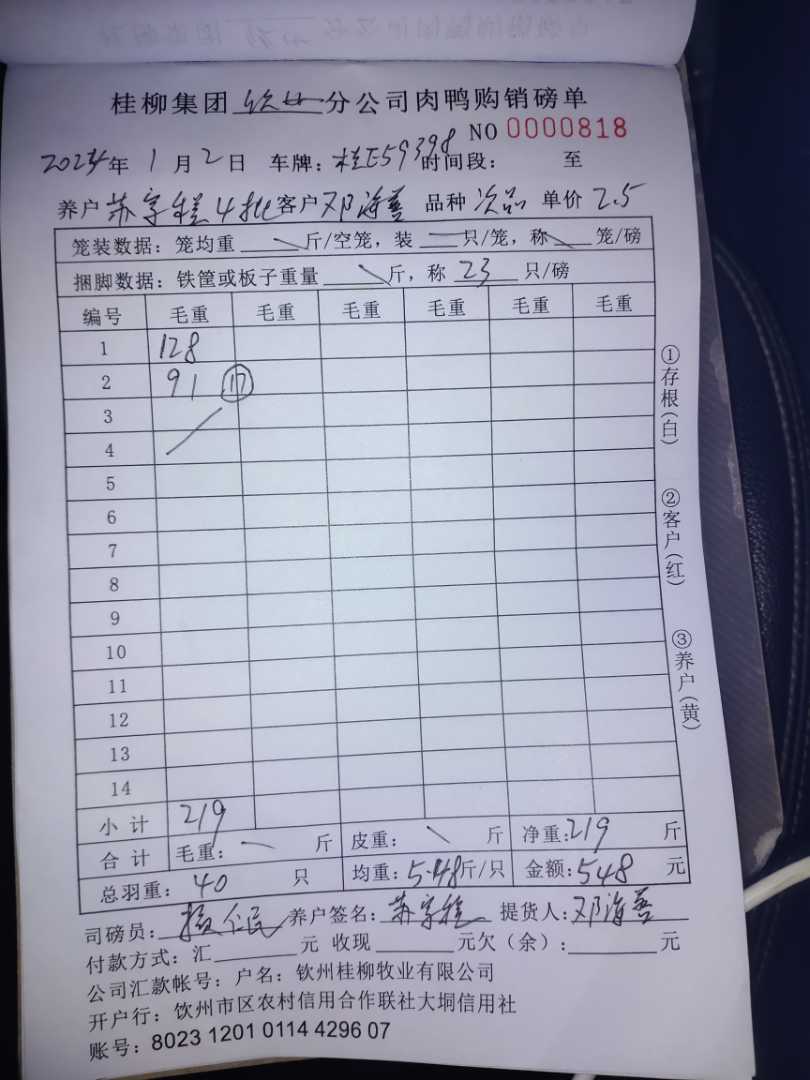 桂柳集团 钦州 分公司肉鸭购销磅单
NO 0000818
2024年 1月2日 车牌：桂E59398 时间段： 至
养户 苏 4批 客户 邓海善 品种 次品 单价 2.5
笼装数据：笼均重 斤/空笼，装 只/笼，称 笼/磅
捆脚数据：铁筐或板子重量 斤，称 23 只/磅
编号 毛重 毛重 毛重 毛重 毛重 毛重
1 128
2 91 17
3
4
5
6
7
8
9
10
11
12
13
14
小计 219
合计 毛重： 斤 皮重： 斤 净重：219 斤
总羽重：40 只 均重：5.48斤/只 金额：548 元
司磅员： 仁民 养户签名：苏 提货人：邓海善
付款方式：汇 元 收现 元欠（余）： 元
公司汇款帐号：户名：钦州桂柳牧业有限公司
开户行：饮州市区农村信用合作联社大垌信用社
账号：8023 1201 0114 4296 07
①存根(白)
②客户(红)
③养户(黄)